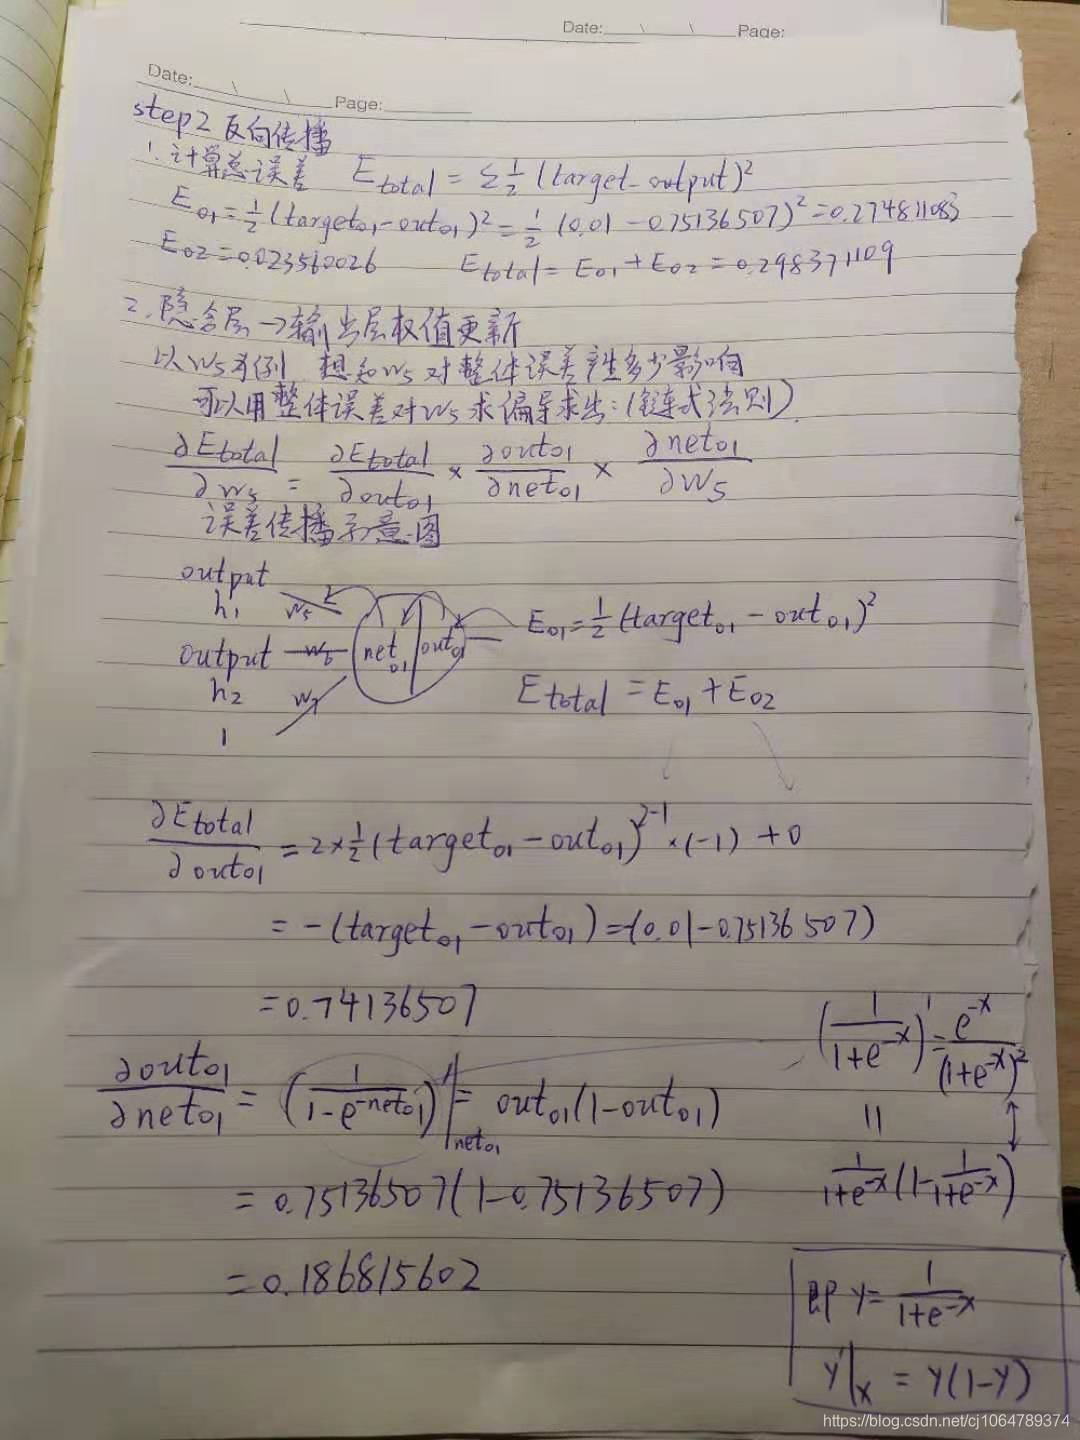 Date:___\___\___Page:
Date:___\___\___Page:___
step2 反向传播
1.计算总误差 E_total = Σ½(target-output)²
E_01 = ½(target_01-out_01)² = ½(0.01-0.75136507)² = 0.274811083
E_02=0.023560026 E_total = E_01+E_02 = 0.298371109
2.隐含层→输出层权值更新
以W5为例 想知W5对整体误差产生多少影响
可以用整体误差对W5求偏导求出:(链式法则)
∂E_total/∂W5 = ∂E_total/∂out_01 × ∂out_01/∂net_01 × ∂net_01/∂W5
误差传播示意图
output h1 W5
output h2 W6
1 W7
net_01 out_01
E_01=½(target_01-out_01)²
E_total = E_01+E_02
∂E_total/∂out_01 = 2×½(target_01-out_01)^(2-1)×(-1)+0
= -(target_01-out_01) = -(0.01-0.75136507)
= 0.74136507
∂out_01/∂net_01 = (1/(1-e^(-net_01)))'|net_01 = out_01(1-out_01)
= 0.75136507(1-0.75136507)
= 0.186815602
(1/(1+e^-x))' = e^-x/(1+e^-x)²
||
1/(1+e^-x)(1-1/(1+e^-x))
即 y = 1/(1+e^-x)
y'|x = y(1-y)
https://blog.csdn.net/cj1064789374